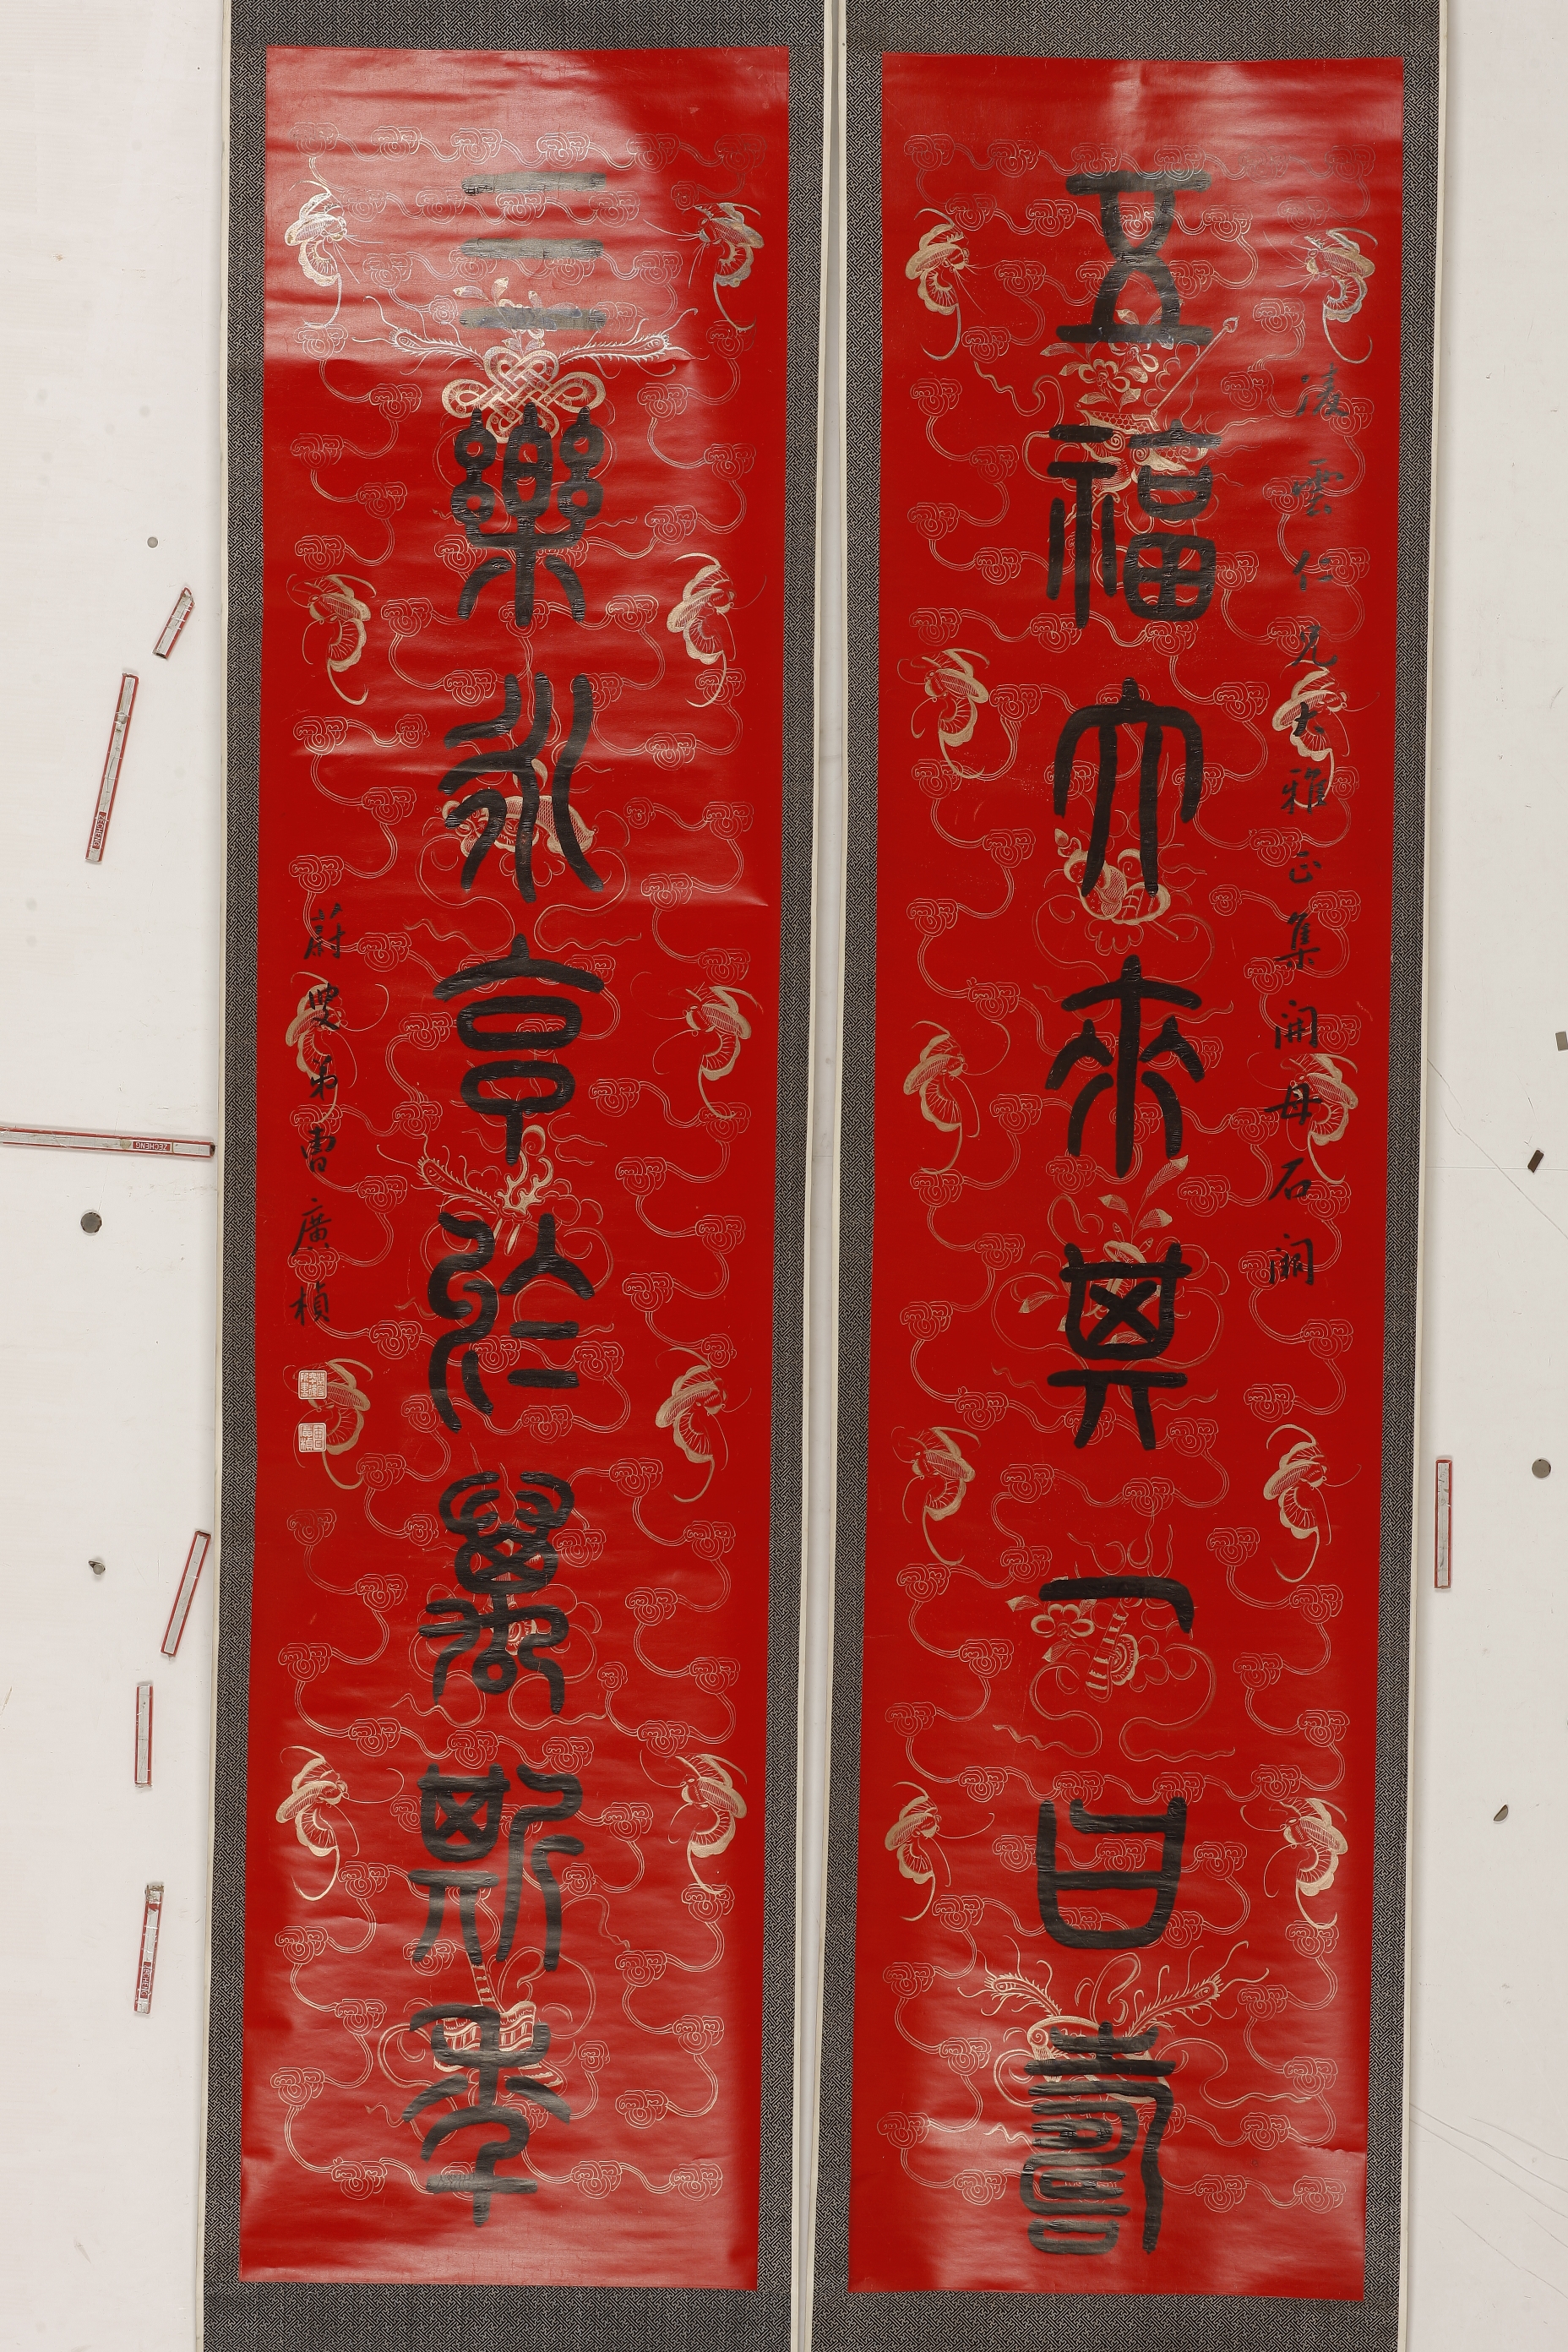 凌雲仁兄大雅正集開母石闕
五福大來其一曰壽
三樂永享於萬斯年
蔚叟弟曹廣楨
ZECHENG
ZECHENG